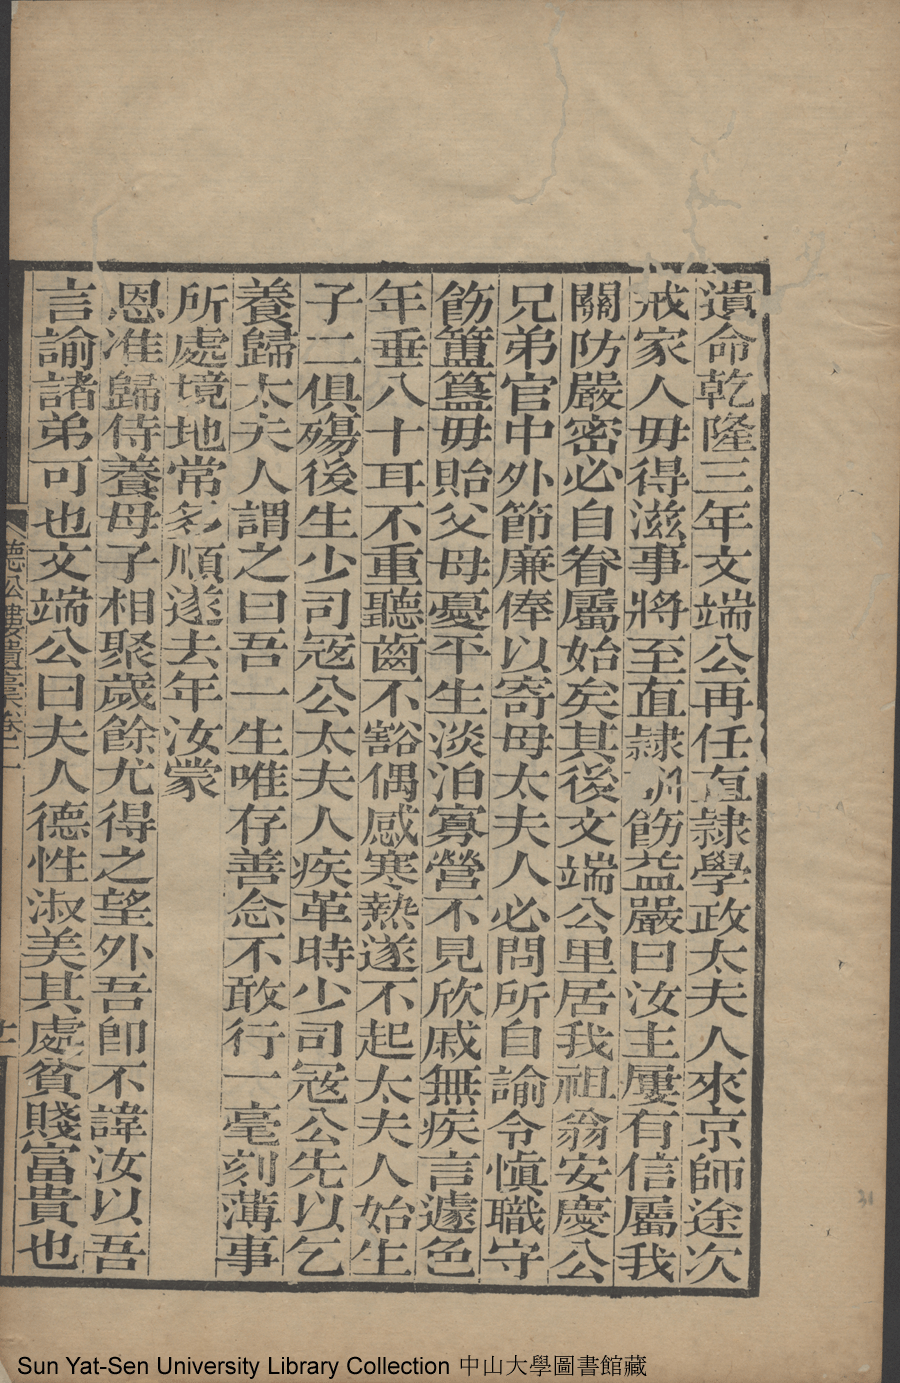 遺命乾隆三年文端公再任直隸學政太夫人來京師途次
戒家人毋得滋事將至直隸飭益嚴曰汝主屢有信屬我
關防嚴密必自眷屬始矣其後文端公里居我祖翁安慶公
兄弟官中外節廉俸以寄母太夫人必問所自諭令慎職守
飭簠簋毋貽父母憂平生淡泊寡營不見欣戚無疾言遽色
年垂八十耳不重聽齒不豁偶感寒熱遂不起太夫人始生
子二俱殤後生少司寇公太夫人疾革時少司寇公先以乞
養歸太夫人謂之曰吾一生唯存善念不敢行一毫刻薄事
所處境地常多順遂去年汝蒙
恩准歸侍養母子相聚歲餘尤得之望外吾卽不諱汝以吾
言諭諸弟可也文端公曰夫人德性淑美其處貧賤富貴也
聽松樓遺稾卷二
Sun Yat-Sen University Library Collection 中山大學圖書館藏
31